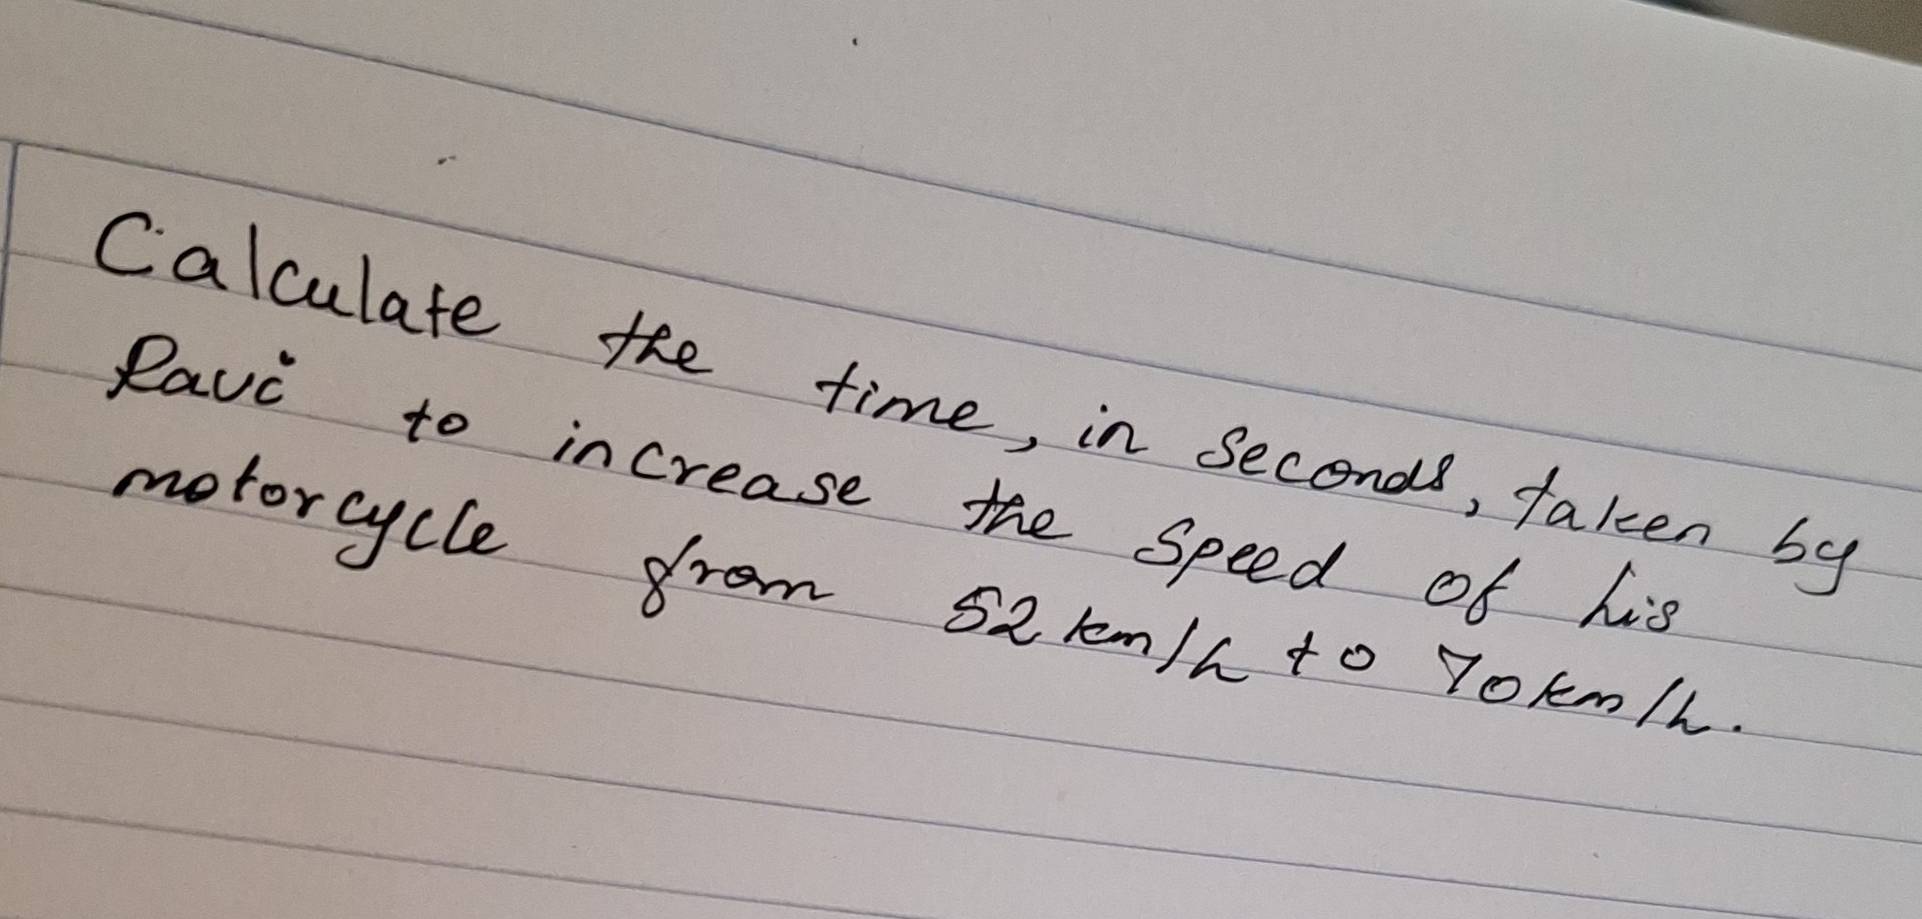 Calculate the time, in seconds, taken by
Ravi to increase the speed of his
motorcycle from 52 km/h to 70 km/h.